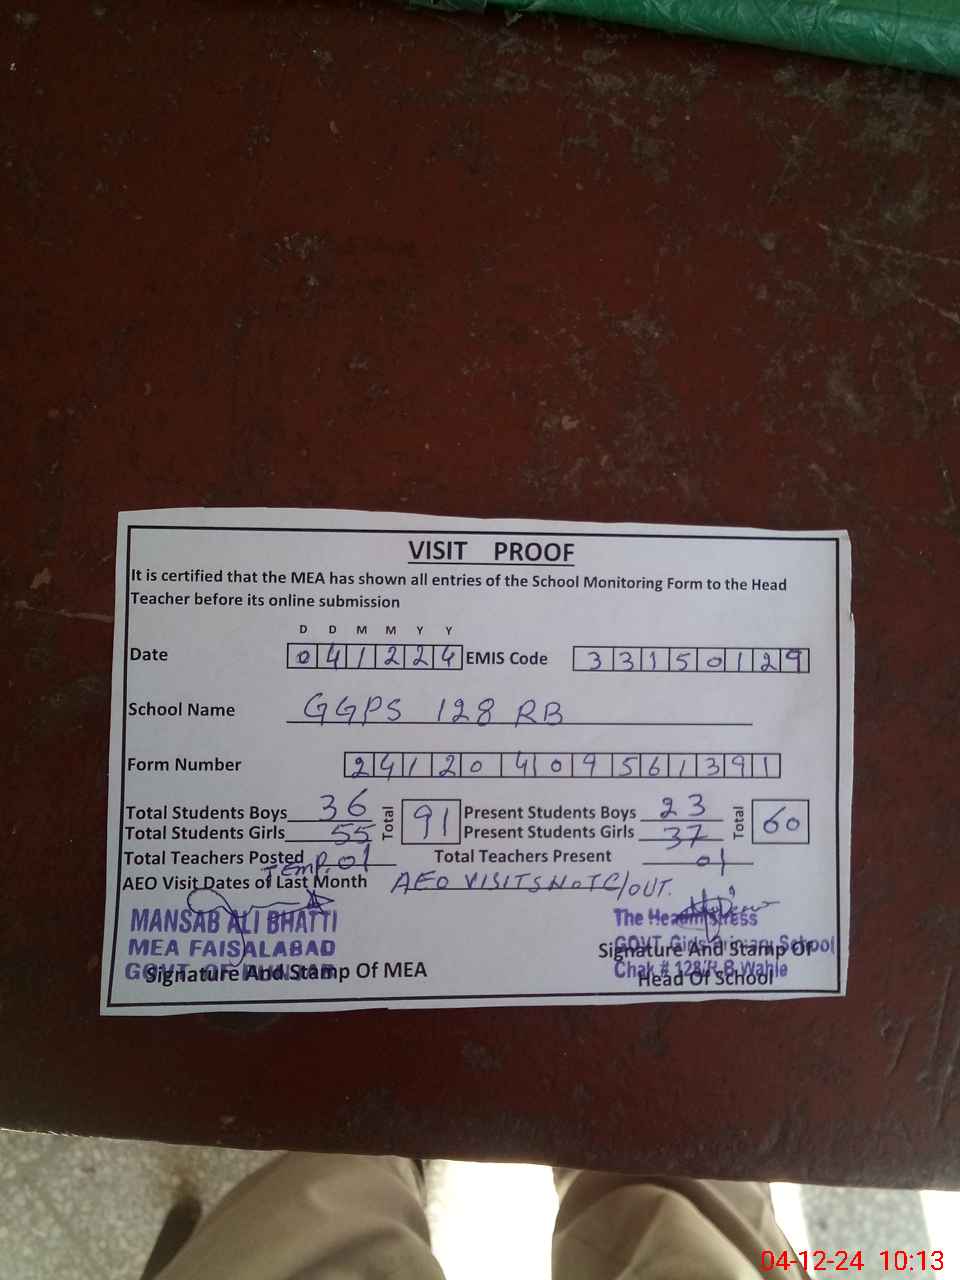 VISIT PROOF
It is certified that the MEA has shown all entries of the School Monitoring Form to the Head
Teacher before its online submission
D D M M Y Y
Date 041224 EMIS Code 33150129
School Name GGPS 128 RB
Form Number 24120409561391
Total Students Boys 36 Total 91 Present Students Boys 23 Total 60
Total Students Girls 55 Present Students Girls 37
Total Teachers Posted Temp. 01 Total Teachers Present 01
AEO Visit Dates of Last Month AEO VISITS NOT C/OUT.
MANSAB ALI BHATTI
MEA FAISALABAD
GOVT OF
Signature And Stamp Of MEA
The Headmistress
GOVT Girls Primary School
Chak # 128/R.B Wahle
Signature And Stamp Of
Head Of School
04-12-24 10:13